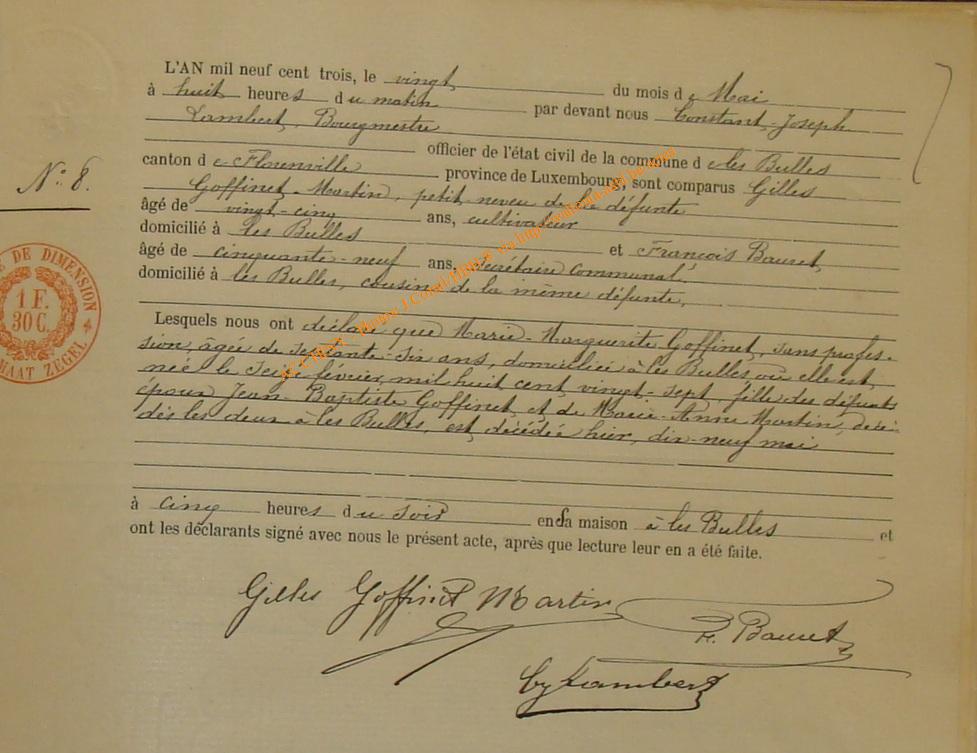 L'AN mil neuf cent trois, le vingt du mois de Mai
à huit heures du matin par devant nous Constant-Joseph
Lambert, Bourgmestre
officier de l'état civil de la commune de les Bulles
canton de Florenville province de Luxembourg, sont comparus Gilles
Nº 8.
Goffinet-Martin, petit-neveu de la défunte
âgé de vingt-cinq ans, cultivateur
domicilié à les Bulles et François Bauret,
âgé de cinquante-neuf ans, secrétaire communal
domicilié à les Bulles, cousin de la même défunte,
Lesquels nous ont déclaré que Marie-Marguerite Goffinet, sans profes-
sion, âgée de septante-six ans, domiciliée à les Bulles où elle est
née le seize février mil huit cent vingt-sept, fille des défunts
époux Jean-Baptiste Goffinet et de Marie-Anne Martin, décé-
dés les deux à les Bulles, est décédée hier, dix-neuf mai
à cinq heures du soir en sa maison à les Bulles et
ont les déclarants signé avec nous le présent acte, après que lecture leur en a été faite.
Gilles Goffinet Martin
F. Bauret
CJ Lambert
DE DIMENSION
1 F.
30 C.
MAAT ZEGEL